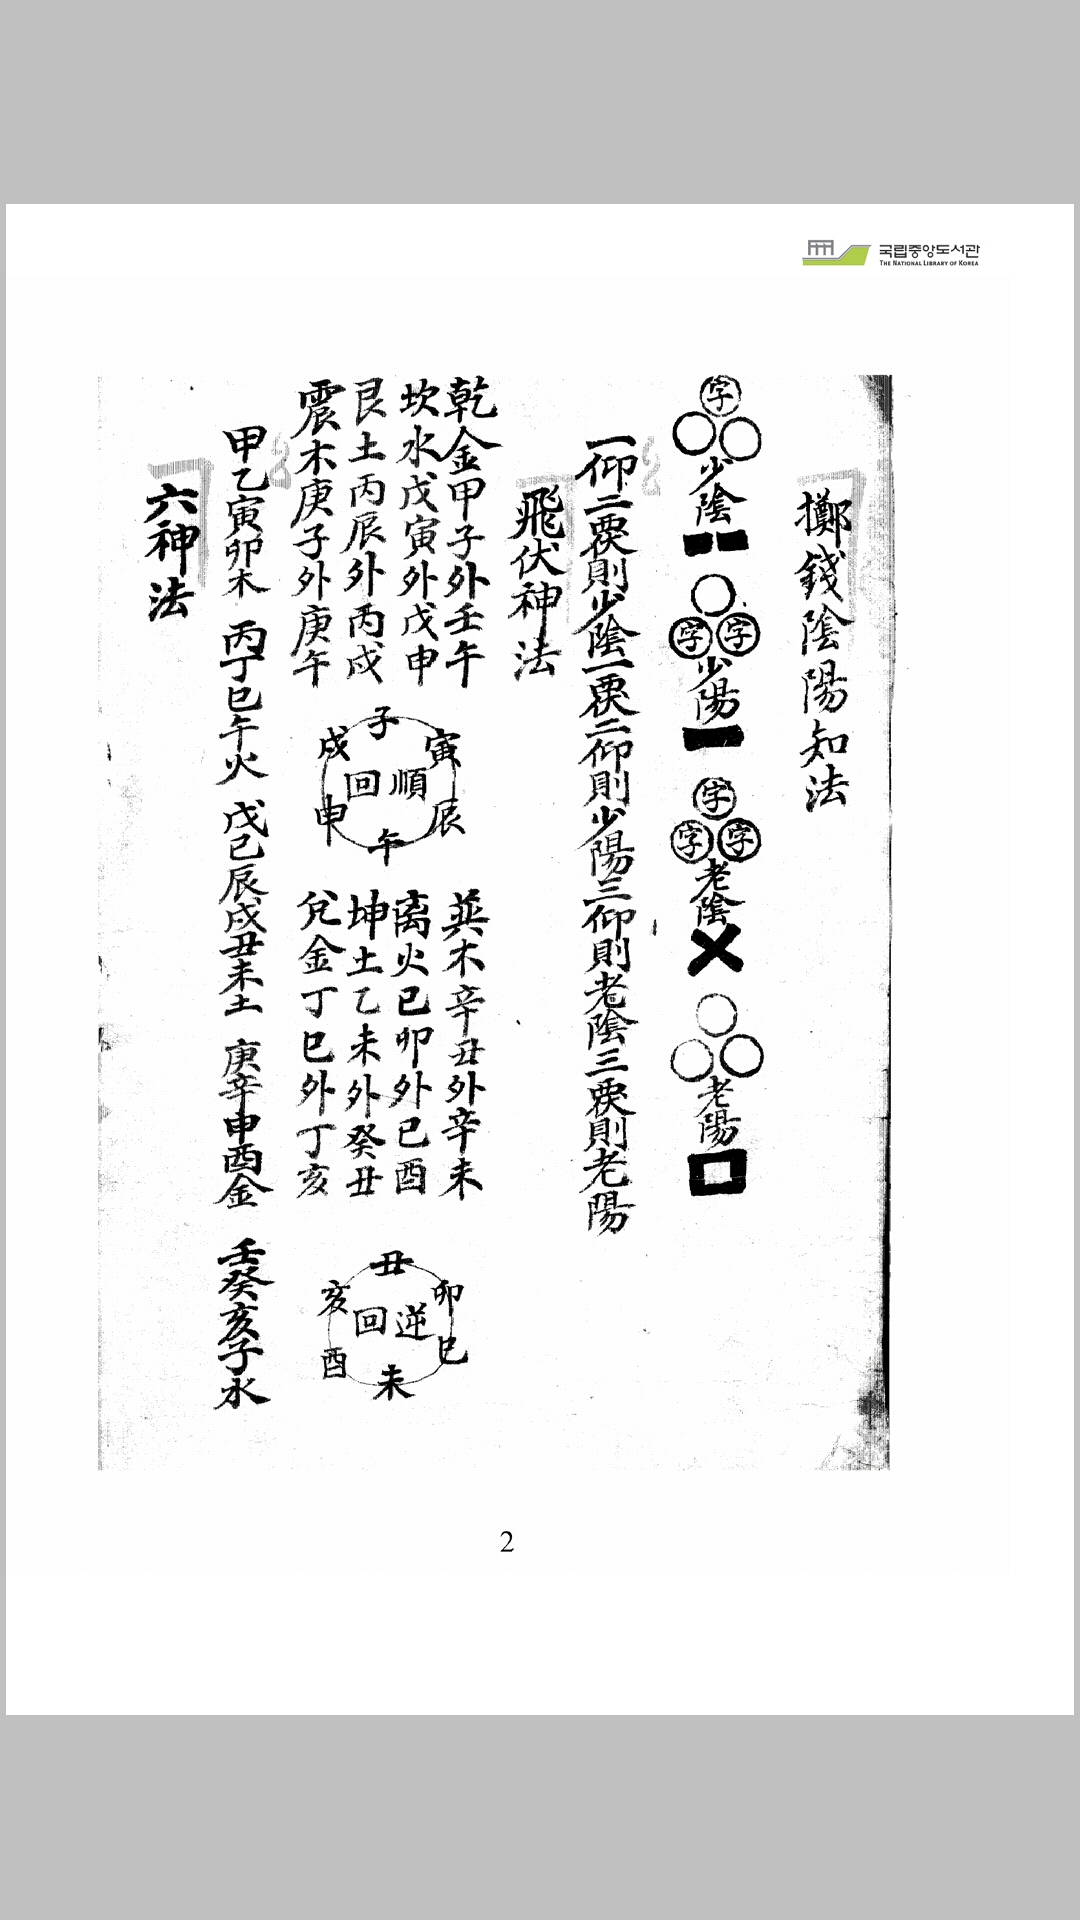 국립중앙도서관
THE NATIONAL LIBRARY OF KOREA
擲錢陰陽知法
字 少陰
字 字 少陽
字 字 字 老陰
老陽
一仰二覆則少陰一覆二仰則少陽三仰則老陰三覆則老陽
飛伏神法
乾金甲子外壬午
坎水戊寅外戊申
艮土丙辰外丙戌
震木庚子外庚午
子 寅 辰 午 申 戌
順回
巽木辛丑外辛未
离火巳卯外巳酉
坤土乙未外癸丑
兌金丁巳外丁亥
丑 卯 巳 未 酉 亥
逆回
甲乙寅卯木 丙丁巳午火 戊己辰戌丑未土 庚辛申酉金 壬癸亥子水
六神法
2